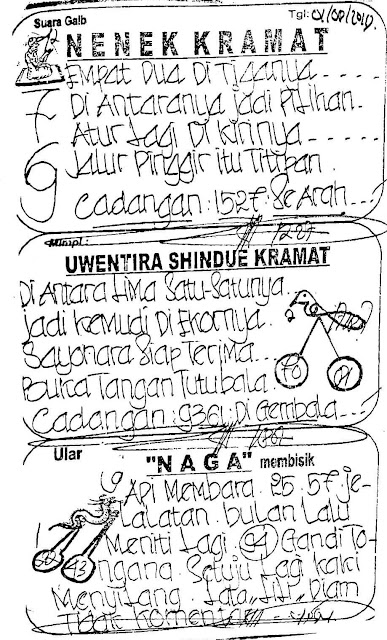 Suara Gaib
Tgl: 01/08/2019.
NENEK KRAMAT
Empat Dua Di Tiganya....
7 Di Antaranya Jadi Pilihan.
Atur Lagi Di Kirinya.....
9 Jalur Pinggir itu Titipan.
Cadangan: 1527. Se Arah...
UWENTIRA SHINDUE KRAMAT
Di Antara Lima Satu-Satunya.
Jadi Kemudi Di Ekornya.
Sayonara Siap Terima...
Buka Tangan Tutup bala
Cadangan: 9361: Di Gembala...
Ular
"NAGA" membisik
Api Membara. 25.57 je-
Lalatan. Bulan Lalu
Meniti Lagi. 94 Gandi To-
ngang. Setuju Lagi kaki
Menyilang.
Tidak Komentar